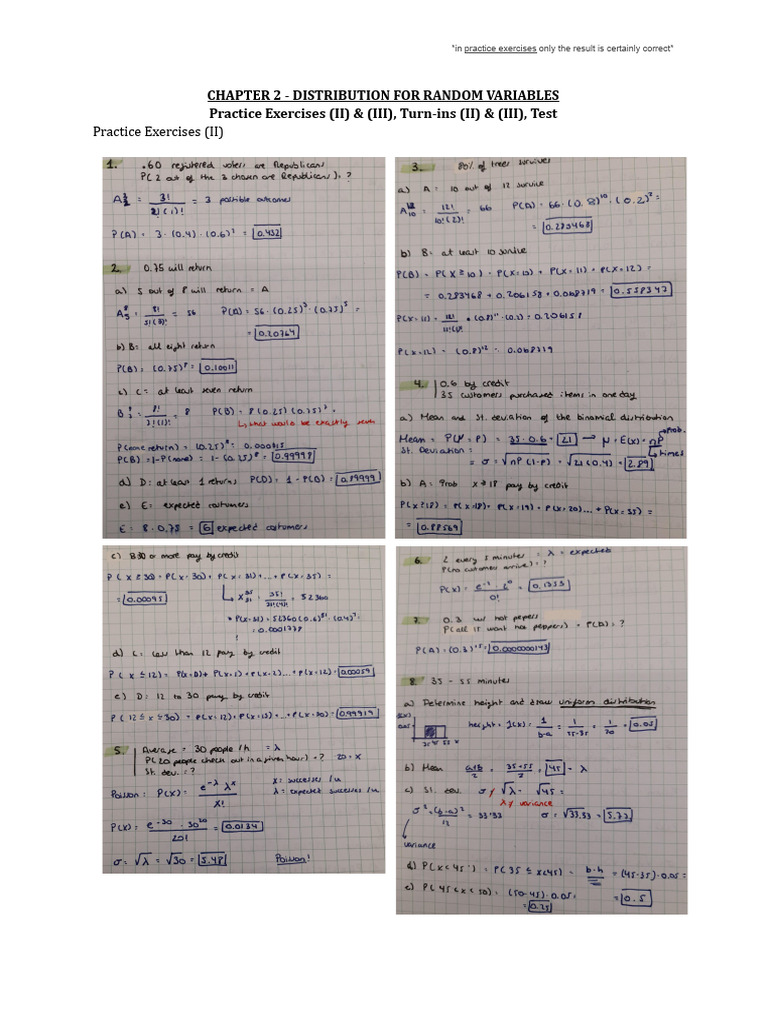 "in practice exercises only the result is certainly correct"
CHAPTER 2 - DISTRIBUTION FOR RANDOM VARIABLES
Practice Exercises (II) & (III), Turn-ins (II) & (III), Test
Practice Exercises (II)
1. .60 registered voters are Republicans
P(2 out of the 3 chosen are Republicans) = ?
= 3! / 2!(1)! = 3 possible outcomes
P(A) = 3 · (0.4) · (0.6)² = 0.432
2. 0.75 will return
a) 5 out of 8 will return = A
= 8! / 5!(3)! = 56 P(A) = 56 · (0.25)³ · (0.75)⁵ =
= 0.20764
b) B: all eight return
P(B) = (0.75)⁸ = 0.10011
c) C = at least seven return
= 8! / 7!(1)! = 8 P(B) = 8(0.25)(0.75)⁷ =
↳ that would be exactly seven
P(none return) = (0.25)⁸ =
P(B) = 1 - P(none) = 1 - (0.25)⁸ = 0.99998
d) D: at least 1 returns P(D) = 1 - P(0) =
e) E: expected costumers
E = 8 · 0.75 = 6 expected costumers
3. 80% of trees survives
a) A = 10 out of 12 survive
= 12! / 10!(2)! = 66 P(A) = 66 · (0.8)¹⁰ · (0.2)² =
= 0.283468
b) B: at least 10 survive
P(B) = P(X ≥ 10) = P(X=10) + P(X=11) + P(X=12) =
= 0.283468 + 0.206158 + 0.068719 = 0.558347
P(X=11) = = 0.206158
P(X=12) = (0.8)¹² = 0.068719
4. 0.6 by credit
35 customers purchased items in one day
a) Mean and St. deviation of the binomial distribution
Mean = 35 · 0.6 = 21 → μ = E(x) = nP
Prob.
times
St. Deviation:
= σ = √nP(1-P) = √21(0.4) = 2.89
b) A = Prob x ≥ 18 pay by credit
P(X ≥ 18) = P(X=18) + P(X=19) + P(X=20) ... + P(X=35) =
= 0.88569
c) B 30 or more pay by credit
P(X ≥ 30) = P(X=30) + P(X=31) + ... + P(X=35) =
= 0.00095
= 35! / 31!(4)! = 52360
P(X=31) = 52360(0.6)³¹ · (0.4)⁴ =
d) C = less than 12 pay by credit
P(X ≤ 12) = P(X=0) + P(X=1) + P(X=2) ... + P(X=12) = 0.00059
e) D: 12 to 30 pay by credit
P(12 ≤ x ≤ 30) = P(X=12) + P(X=13) + ... + P(X=30) = 0.99919
5. Average = 30 people/h = λ
P(20 people check out in a given hour) = ? 20 = x
St. dev. = ?
Poisson: P(X) = e^-λ λ^x / x!
x = successes /u
λ = expected successes /u
P(X) = e^-30 · 30^20 / 20! = 0.0134
σ = √λ = √30 = 5.48 Poisson!
6. 2 every 5 minutes = λ = expected
P(no customer arrive) = ?
P(X) = e^-2 · 2^0 / 0! = 0.1353
7. 0.3 want hot peppers
P(all 15 want hot peppers) = P(A) = ?
P(A) = (0.3)¹⁵ = 0.0000000143
8. 35 - 55 minutes
a) Determine height and draw uniform distribution
height = f(x) = 1 / b-a = 1 / 55-35 = 1 / 20 = 0.05
35 45 55 x
b) Mean a+b / 2 = 35+55 / 2 = 45 = λ
c) St. dev. σ ≠ √λ = √45 =
λ ≠ variance
σ² = (b-a)² / 12 = 33'33 σ = √33.33 = 5.77
variance
d) P(X < 45) = P(35 ≤ x < 45) = b·h = (45-35) · 0.05 =
= 0.5
e) P(45 < x < 50) = (50-45) · 0.05 =
= 0.25